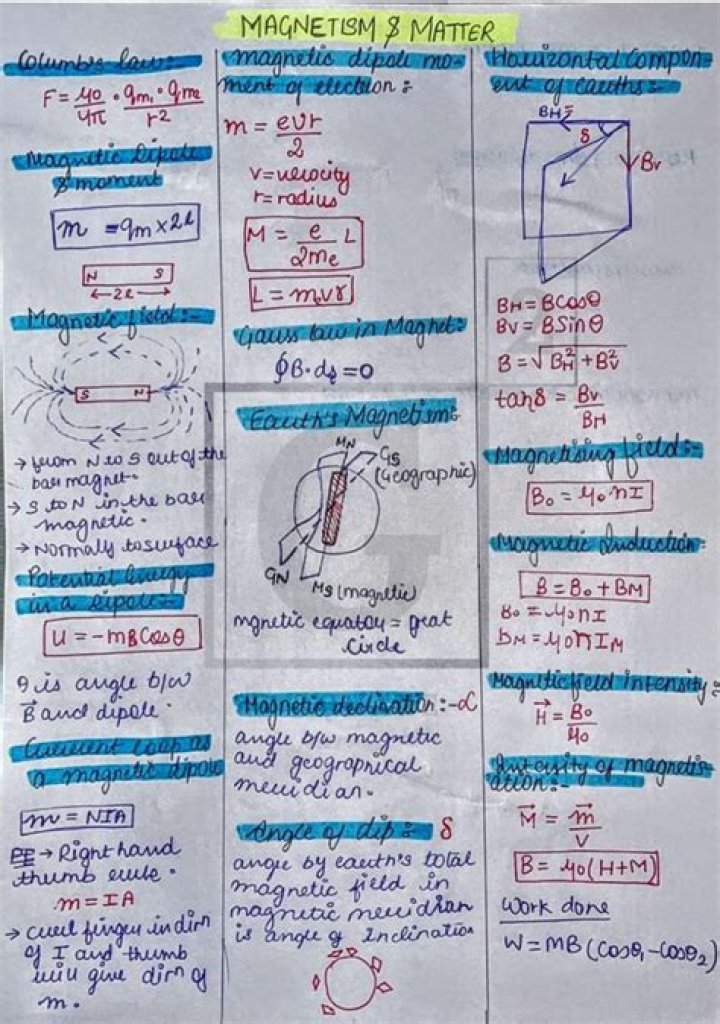 MAGNETISM & MATTER
Columb's law:-
F = μ0/4π · qm1 · qm2/r2
Magnetic Dipole
& moment
m = qm × 2l
N S
←2l→
Magnetic field:-
S N
→ from N to S out of the
bar magnet.
→ S to N in the bar
magnetic.
→ Normally to surface
Potential Energy
in a Dipole:-
U = -mBCosθ
θ is angle b/w
B⃗ and dipole.
Current loop as
a magnetic dipole
m = NIA
→ Right hand
thumb rule.
m = IA
→ curl finger in dirn
of I and thumb
will give dirn of
m.
magnetic dipole mo-
ment of electron:-
m = evr/2
v = velocity
r = radius
M = e/2me L
L = mvr
Gauss law in Magnet:
∮B·ds = 0
Earth's Magnetism:
MN
GS
(Geographic)
GN
MS (magnetic)
mgnetic equator = great
circle
Magnetic declination:-α
angle b/w magnetic
and geographical
meridian.
Angle of dip:- δ
angle by earth's total
magnetic field in
magnetic meridian
is angle of Inclination
Horizontal Compon-
ent of earths:-
BH
δ
Bv
BH = BCosθ
BV = BSinθ
B = √BH2 + BV2
tanδ = Bv/BH
Magnetising field:-
B0 = μ0nI
Magnetic Induction:
B = B0 + BM
B0 = μ0nI
BM = μ0nIM
Magnetic field intensity:-
H⃗ = B0/μ0
Intersity of magnetis-
ation:-
M⃗ = m⃗/V
B = μ0(H+M)
Work done
W = MB(Cosθ1 - Cosθ2)